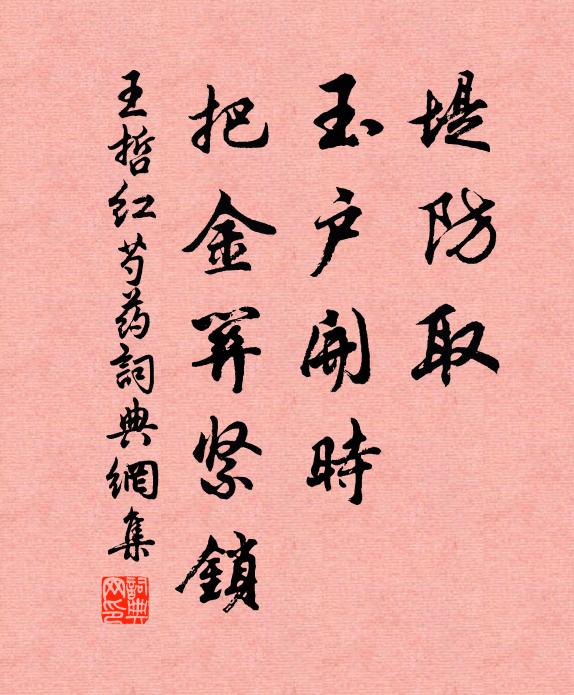 堤防取
玉戶開時
把金筓紧鎖
王哲红芍药詞典網集
詞典网印